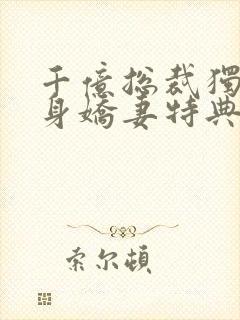 千億總裁獨
身嬌妻特典
索尔頓